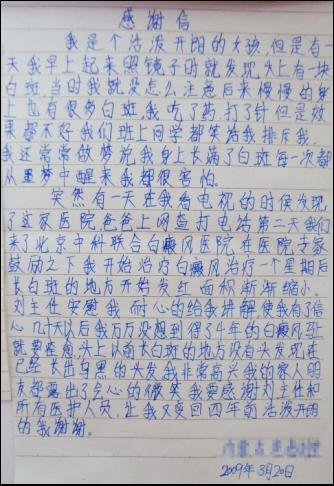 感谢信
我是个活泼开朗的女孩但是有
天我早上起来照镜子时就发现头上有一块
白斑当时我就没怎么注意后来慢慢的身
上也有很多白斑我吃了药打了针但是效
果都不好我们班上同学都笑话我排斥我
我还常常做梦说我身上长满了白斑每一次都
从噩梦中醒来我都很害怕。
突然有一天在我看电视的时侯发现
了这家医院爸爸上网查打电话第二天我们
来了北京中科联合白癜风医院在医院专家
鼓励之下我开始治疗白癜风治疗一个星期后
长白斑的地方开始发红面积渐渐缩小。
刘主任安慰我耐心的给我讲解,使我有了信
心几十天以后我万万没想到得了4年的白癜风马上
就要痊愈,头上以前长白斑的地方没有头发现在
已经长出乌黑的头发我非常高兴我的家人朋
友都露出了会心的微笑我要感谢刘主任和
所有医护人员,让我又变回四年前活泼开朗
的我谢谢。
2009年3月20日